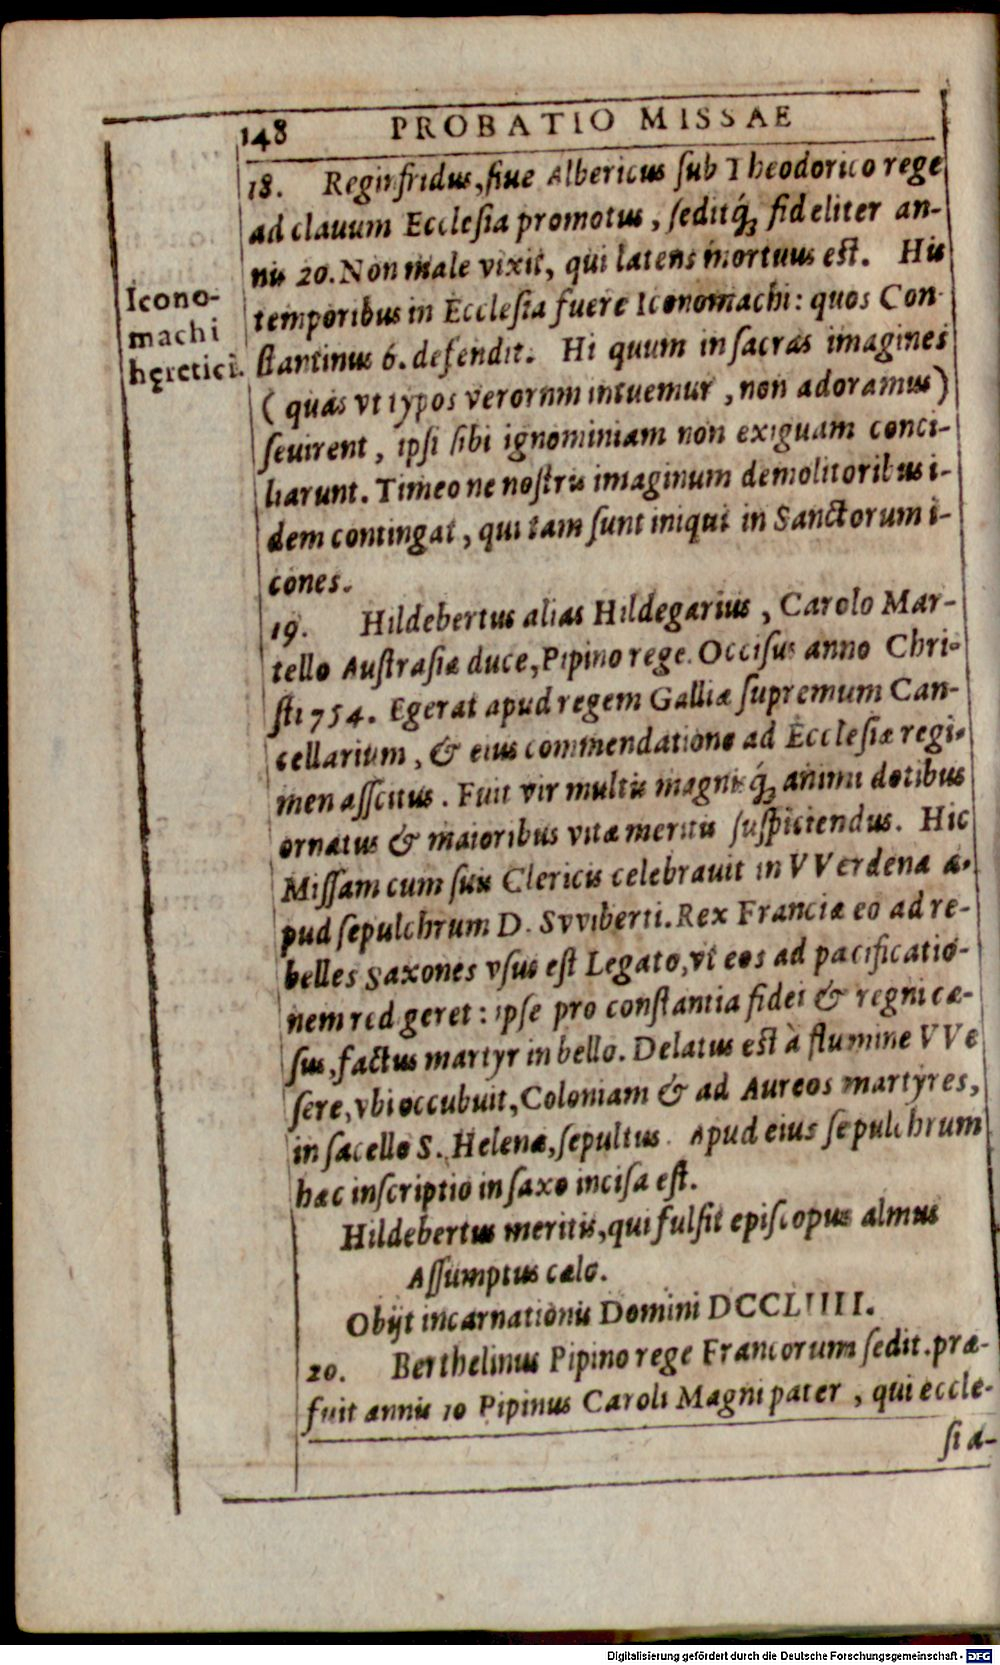 148 PROBATIO MISSAE
18. Reginfridus, siue Albericus sub Theodorico rege
ad clauum Ecclesia promotus, seditq́ꝫ fideliter an-
nis 20. Non male vixit, qui latens mortuus est. His
temporibus in Ecclesia fuere Iconomachi: quos Con-
stantinus 6. defendit. Hi quum in sacras imagines
(quas vt typos verorum intuemur, non adoramus)
seuirent, ipsi sibi ignominiam non exiguam conci-
liarunt. Timeo ne nostris imaginum demolitoribus i-
dem contingat, qui tam sunt iniqui in Sanctorum i-
cones.
Icono-
machi
hęretici.
19. Hildebertus alias Hildegarius, Carolo Mar-
tello Austrasiæ duce, Pipino rege. Occisus anno Chri-
sti 754. Egerat apud regem Galliæ supremum Can-
cellarium, & eius commendatione ad Ecclesiæ regi-
men asscitus. Fuit vir multis magnisq́ꝫ animi dotibus
ornatus & maioribus vitæ meritis suspiciendus. Hic
Missam cum suis Clericis celebrauit in VVerdena a-
pud sepulchrum D. Svviberti. Rex Franciæ eo ad re-
belles Saxones vsus est Legato, vt eos ad pacificatio-
nem redigeret: ipse pro constantia fidei & regni cæ-
sus, factus martyr in bello. Delatus est à flumine VVe
sere, vbi occubuit, Coloniam & ad Aureos martyres,
in sacello S. Helenæ, sepultus. Apud eius sepulchrum
hæc inscriptio in saxo incisa est.
Hildebertus meritis, qui fulsit episcopus almus
Assumptus cælo.
Obijt incarnationis Domini DCCLIIII.
20. Berthelinus Pipino rege Francorum sedit. præ-
fuit annis 10 Pipinus Caroli Magni pater, qui eccle-
sia-
Digitalisierung gefördert durch die Deutsche Forschungsgemeinschaft - DFG